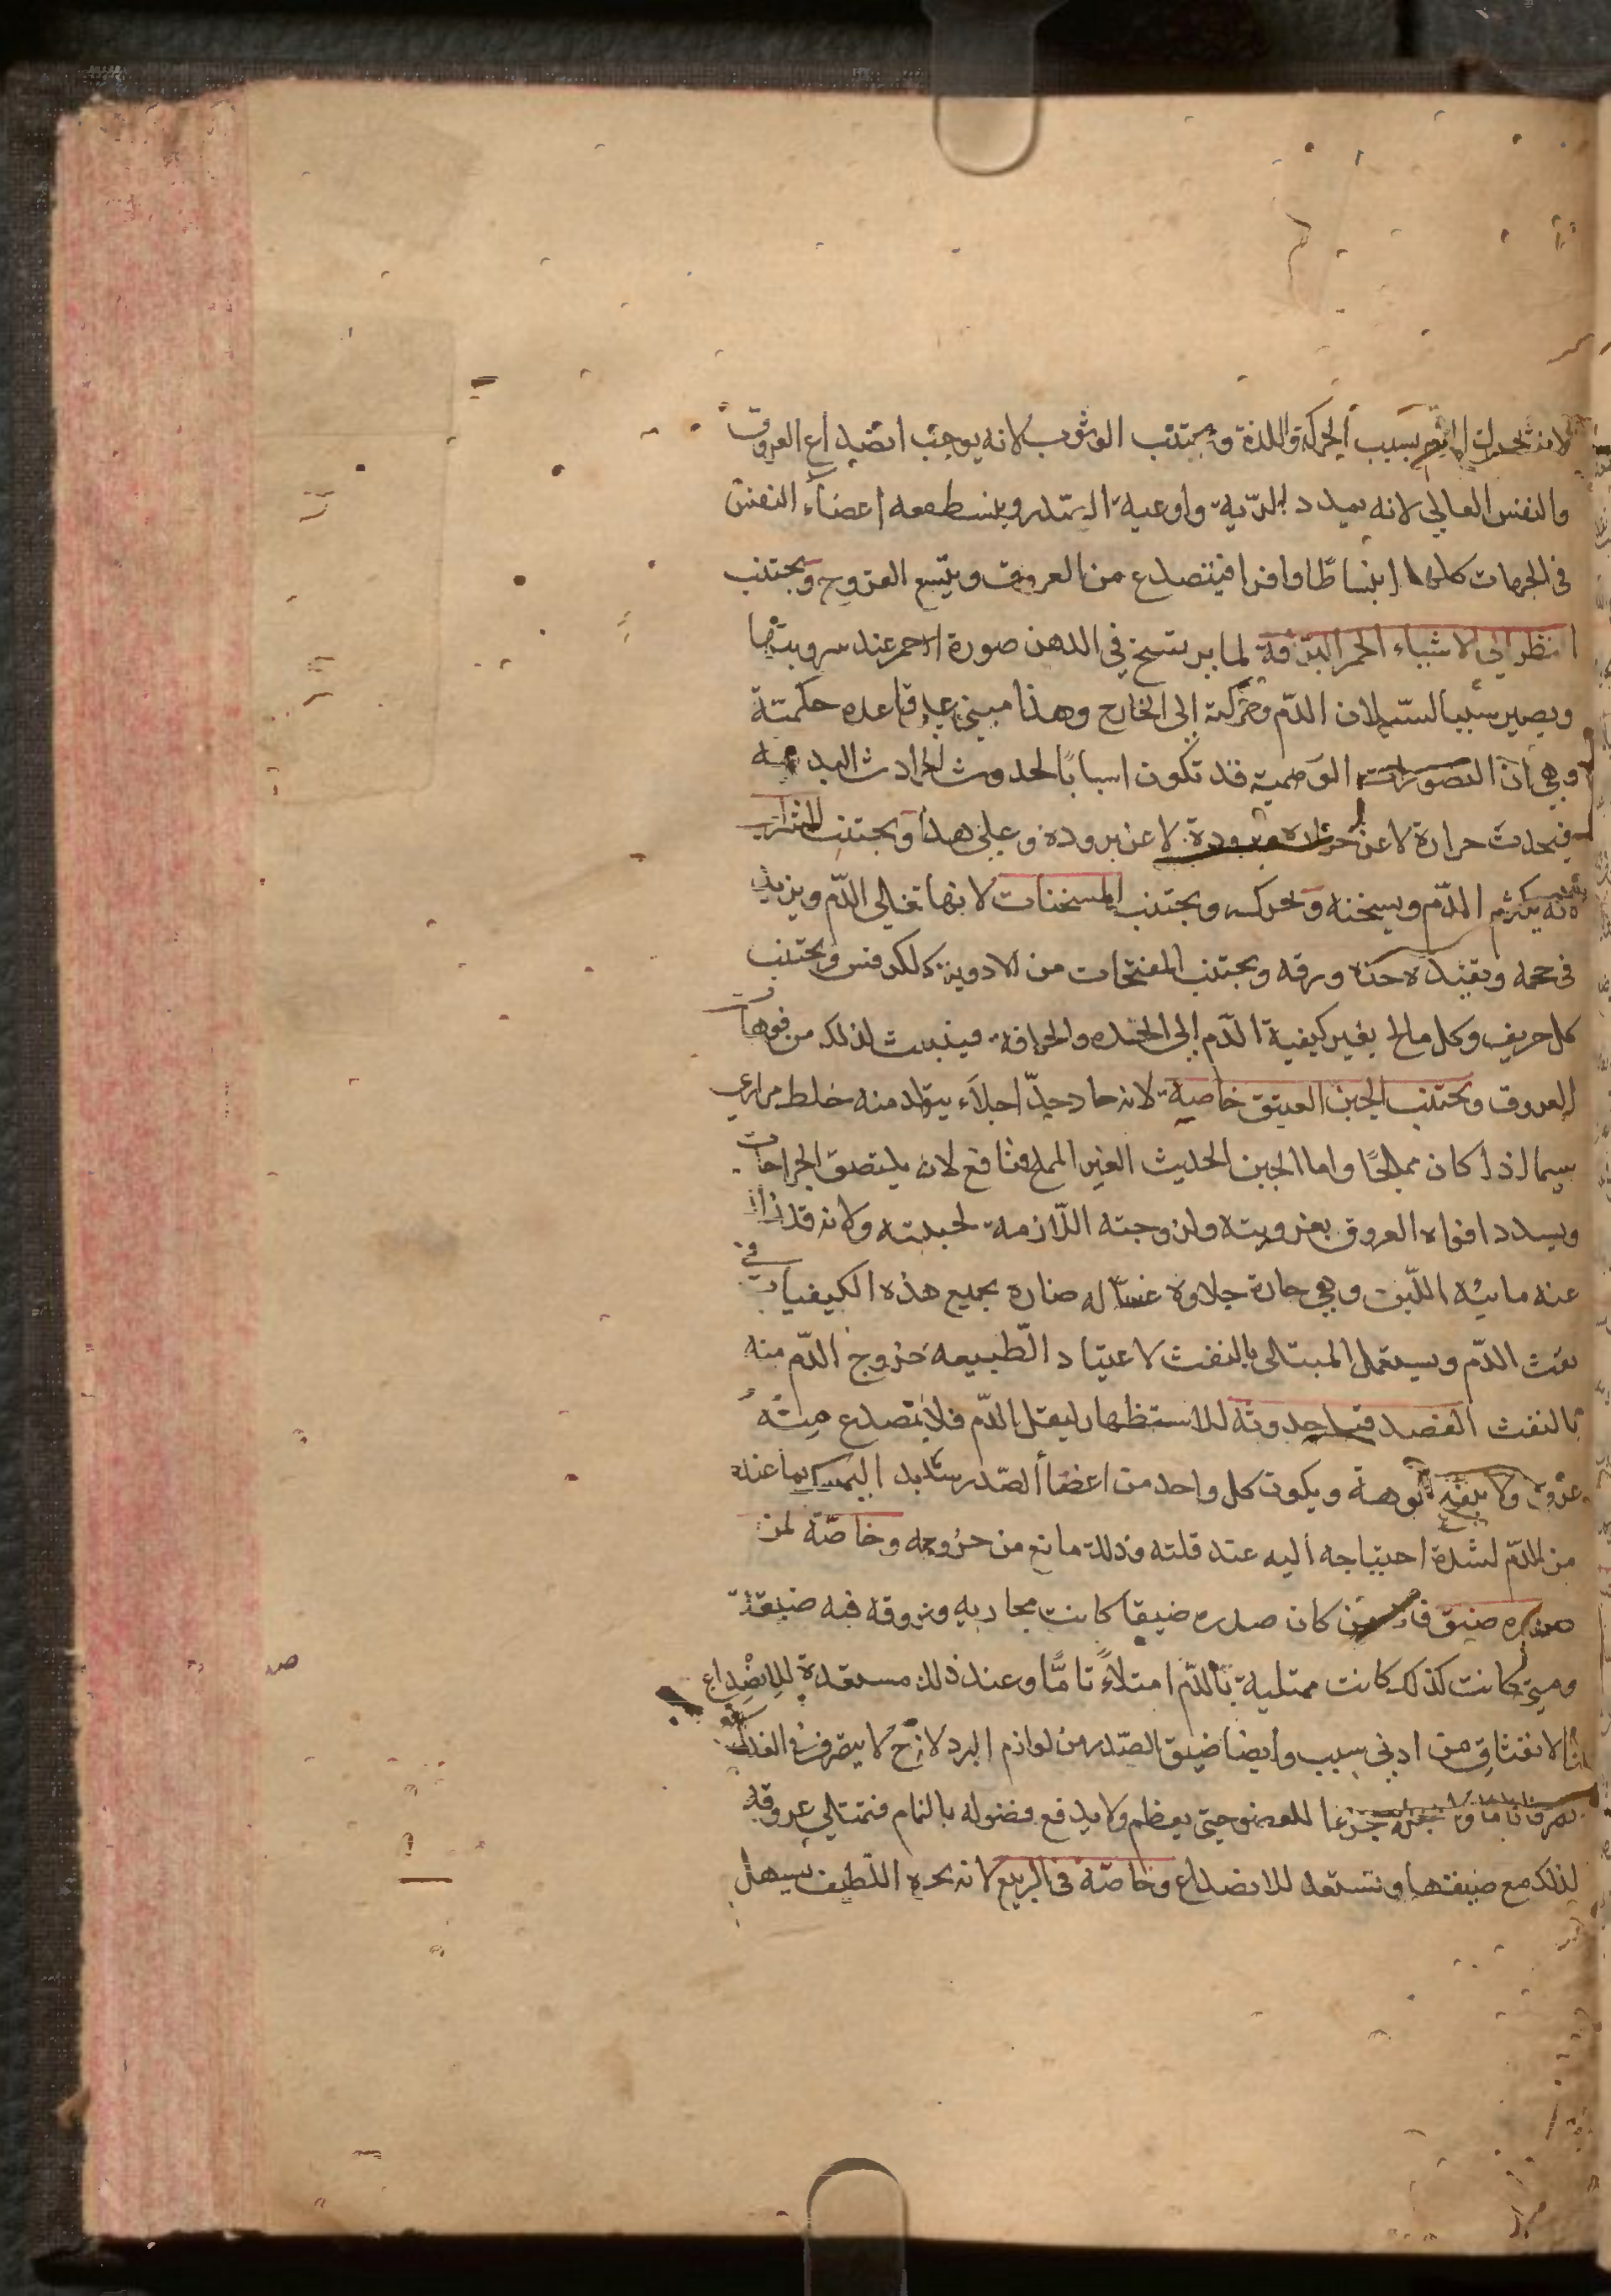 لانه يحرك الدم بسبب الحركة واللذة ويجتنب الوثوب لانه يوجب انصداع العروق
والنفس العالي لانه يمدد الرية واوعية الصدر وينبسط معه اعضاء النفس
في الجهات كلها انبساطا وافرا فينصدع من العروق ويتسع القروح ويجتنب
النظر الى الاشياء الحمر البراقة لما يرتسخ في الذهن صورة الاحمر عند رويتها
ويصير سببا لسيلان الدم وحركته الى الخارج وهذا مبني على قاعده حكمية
وهي ان التصورات الوهمية قد تكون اسبابا لحدوث الحوادث البدنيه
فيحدث حرارة لا عن حرارة وبرودة لا عن بروده وعلى هذا ويجتنب الشراب
لانه يكثر الدم ويسخنه ويحركه ويجتنب المسخنات لانها تغلي الدم ويزيد
في حجمه ويفيده حدة ورقه ويجتنب المفتحات من الادوية كالكرفس ويجتنب
كل حريف وكل مالح يغير كيفية الدم الى الحده والحرافة فينبعث لذلك من فوهات
العروق ويجتنب الجبن العتيق خاصية لانه حاد جدا جلاء يتولد منه خلط مراري
سيما اذا كان مملحا واما الجبن الحديث الغير المملح فنافع لانه يلتصق الجراحات
ويسدد افواه العروق بغرويته ولزوجته اللازمة لجبنيته ولانه قد زال
عنه مائية اللبن وهي حادة جلاوة غسالة ضارة بجميع هذه الكيفيات في
نفث الدم ويستعمل المبتلى بالنفث لاعتياد الطبيعه خروج الدم منه
بالنفث الفصد قبل حدوثه للاستظهار ليقل الدم فلا يتصدع منه
عروق ولا ينفتح فوهة ويكون كل واحد من اعضا الصدر شديد التمسك بما عنده
من الدم لشدة احتياجه اليه عند قلته وذلك مانع من خروجه وخاصة لمن
صدره ضيق فان من كان صدره ضيقا كانت مجاريه وعروقه فيه ضيقة
ومتى كانت كذلك كانت ممتلية بالدم امتلاء تاما وعند ذلك مستعدة للانصداع
والانفثاق من ادنى سبب وايضا ضيق الصدر من لوازم البرد لانه ح لا يتصرف في الغذا
تصرفا تاما ولا يجعله جزءا للعضو حتى يعظم ولا يدفع فضوله بالتمام فتمتلي عروقه
لذلك مع ضيقها وتستعد للانصداع وخاصة في الربيع لانه بحره اللطيف يسهل